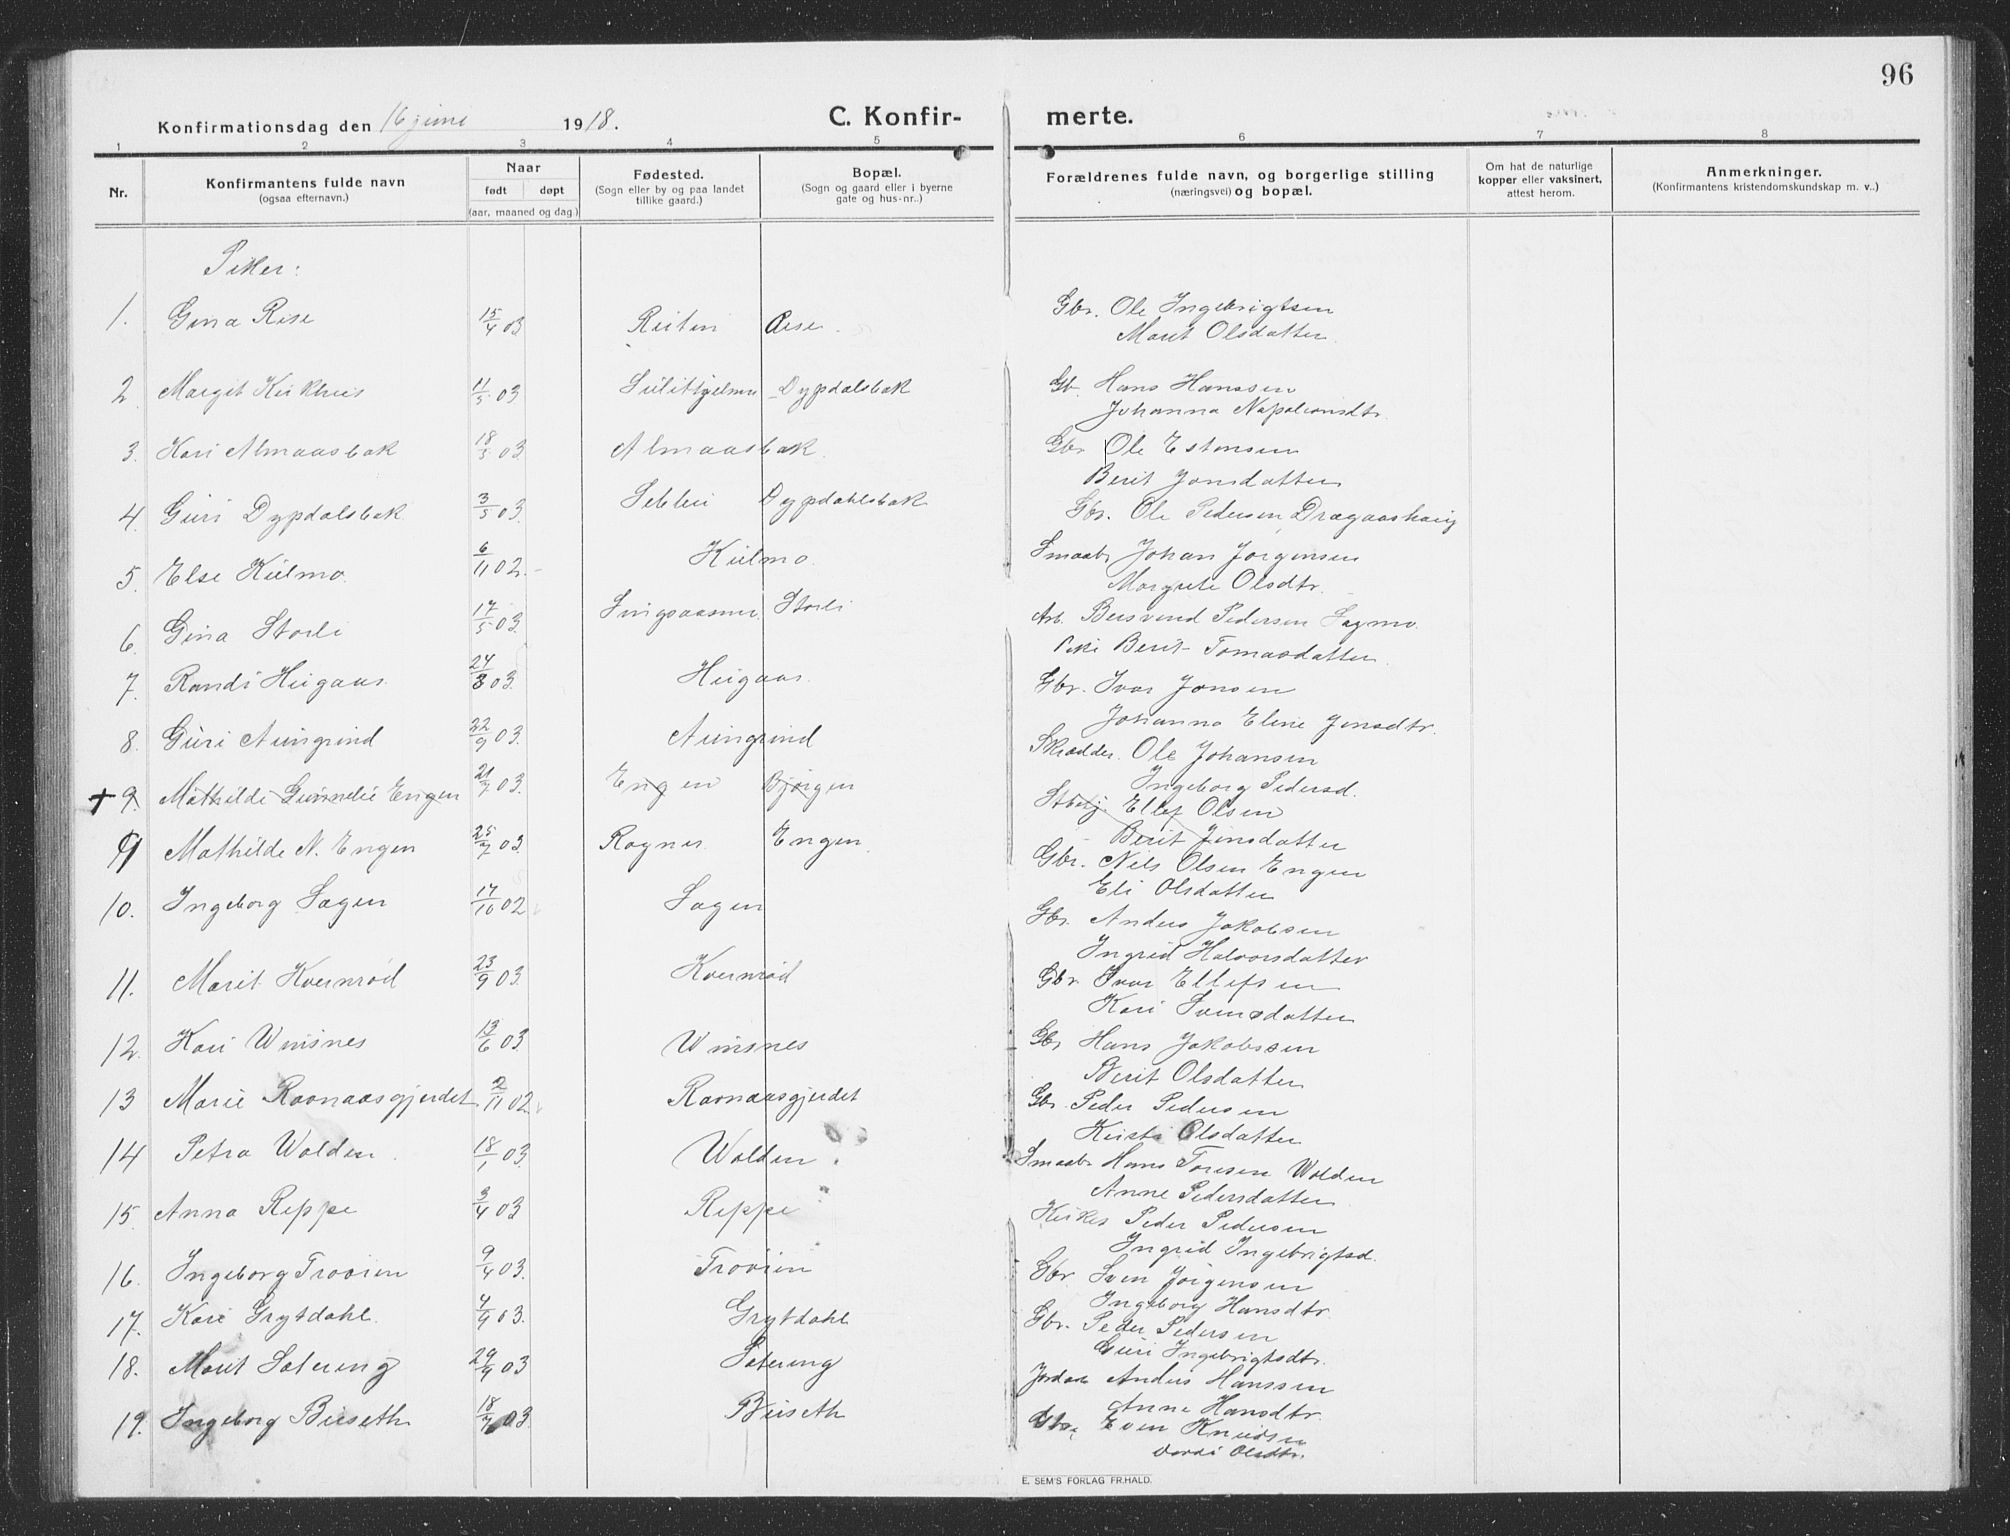 96
Konfirmationsdag den 16 juni 1918.
C. Konfir- merte.
1 2 3 4 5 6 7 8
Nr.
Konfirmantens fulde navn
(ogsaa efternavn.)
Naar
født døpt
(aar, maaned og dag.)
Fødested.
(Sogn eller by og paa landet
tillike gaard.)
Bopæl.
(Sogn og gaard eller i byerne
gate og hus-nr..)
Forældrenes fulde navn, og borgerlige stilling
(næringsvei) og bopæl.
Om hat de naturlige
kopper eller vaksinert,
attest herom.
Anmerkninger.
(Konfirmantens kristendomskundskap m. v..)
Piker:
1. Gina Rise 15/4 03 Reiten Rise Gbr. Ole Ingebrigtsen
Marit Olsdatter
2 Margit Kirkhus 11/5 03 Sulithjelma Dypdalsbak Gb. Hans Hanssen
Johanna Napoleonsdtr.
3. Kari Almaasbak 18/5 03 Almaasbak Gbr Ole Estensen
Berit Jonsdatter
4. Guri Dypdalsbak 3/5 03 Dypdahlsbak Gbr. Ole Pedersen Dragaashaug
5. Else Kulmo 6/11 02 Kulmo Smaabr Johan Jorgensen
Margrete Olsdtr.
6. Gina Storli 17/5 03 Singsaasmo Storli Arb. Bersvend Pedersen Sagmo
Pike Berit Tomasdatter
7. Randi Hugaas 24/8 03 Hugaas Gbr. Ivar Jonsen
Johanna Eline Jensdtr.
8. Guri Aungrind 22/9 03 Aungrind Skrædder Ole Johansen
Ingeborg Pedersd.
+ 9. Mathilde Gunnelie Engen 21/7 03 Engen Bjørgen Ellef Olsen
Berit Jensdatter
9 Mathilde N. Engen 25/7 03 Rognes Engen Gbr. Nils Olsen Engen
Eli Olsdatter
10. Ingeborg Sagen 17/10 02 Sagen Gbr. Anders Jakobsen
Ingrid Halvorsdatter
11. Marit Kvernrød 23/9 03 Kvernrød Gbr Ivar Ellefsen
Kari Svensdatter
12. Kari Winsnes 13/6 03 Winsnes Gbr Hans Jakobssen
Berit Olsdatter
13 Marie Ravnaasgjerdet 2/11 02 Ravnaasgjerdet Gbr. Peder Pedersen
Kirsti Olsdatter
14 Petra Wolden 18/1 03 Wolden Smaabr Hans Toresen Wolden
Anne Pedersdatter
15. Anna Reppe 3/4 03 Reppe Peder Pedersen
Ingrid Ingebrigtsd.
16. Ingeborg Trøøien 9/4 03. Trøøien Gbr. Sven Jørgensen
Ingeborg Hansdtr
17. Kari Grytdahl 4/9 03. Grytdahl Gbr. Peder Pedersen
Guri Ingebrigtsdtr.
18. Marit Sætering 29/9 03 Sætering Anders Hanssen
Anne Hansdtr.
19. Ingeborg Buseth 18/7 03 Buseth Gbr. Even Knudsen
Dordi Olsdtr.
E. SEM'S FORLAG FR.HALD.